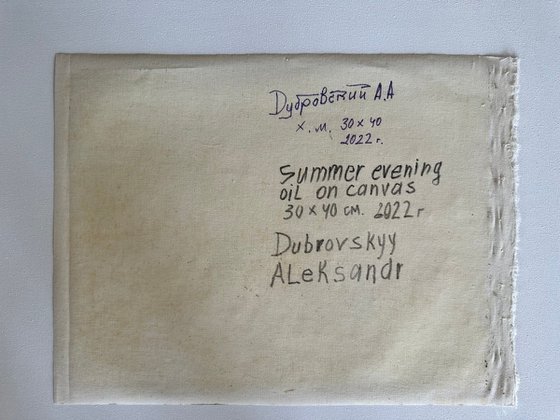 Дубровский А.А
х.м. 30 х 40
2022 г.
Summer evening
oil on canvas
30 х 40 см. 2022 г
Dubrovskyy
ALeKsandr